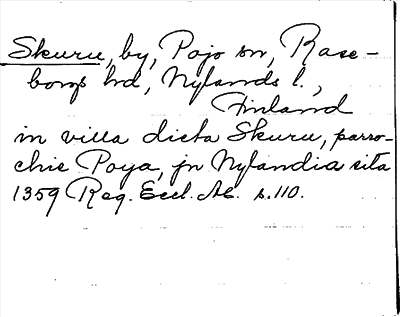 Skuru, by, Pojo sn, Rase-
borgs hd, Nylands l.,
Finland
in villa dicta Skuru, parro-
chie Poya, jn Nylandia sita
1359 Reg. Eccl. Ab. s. 110.